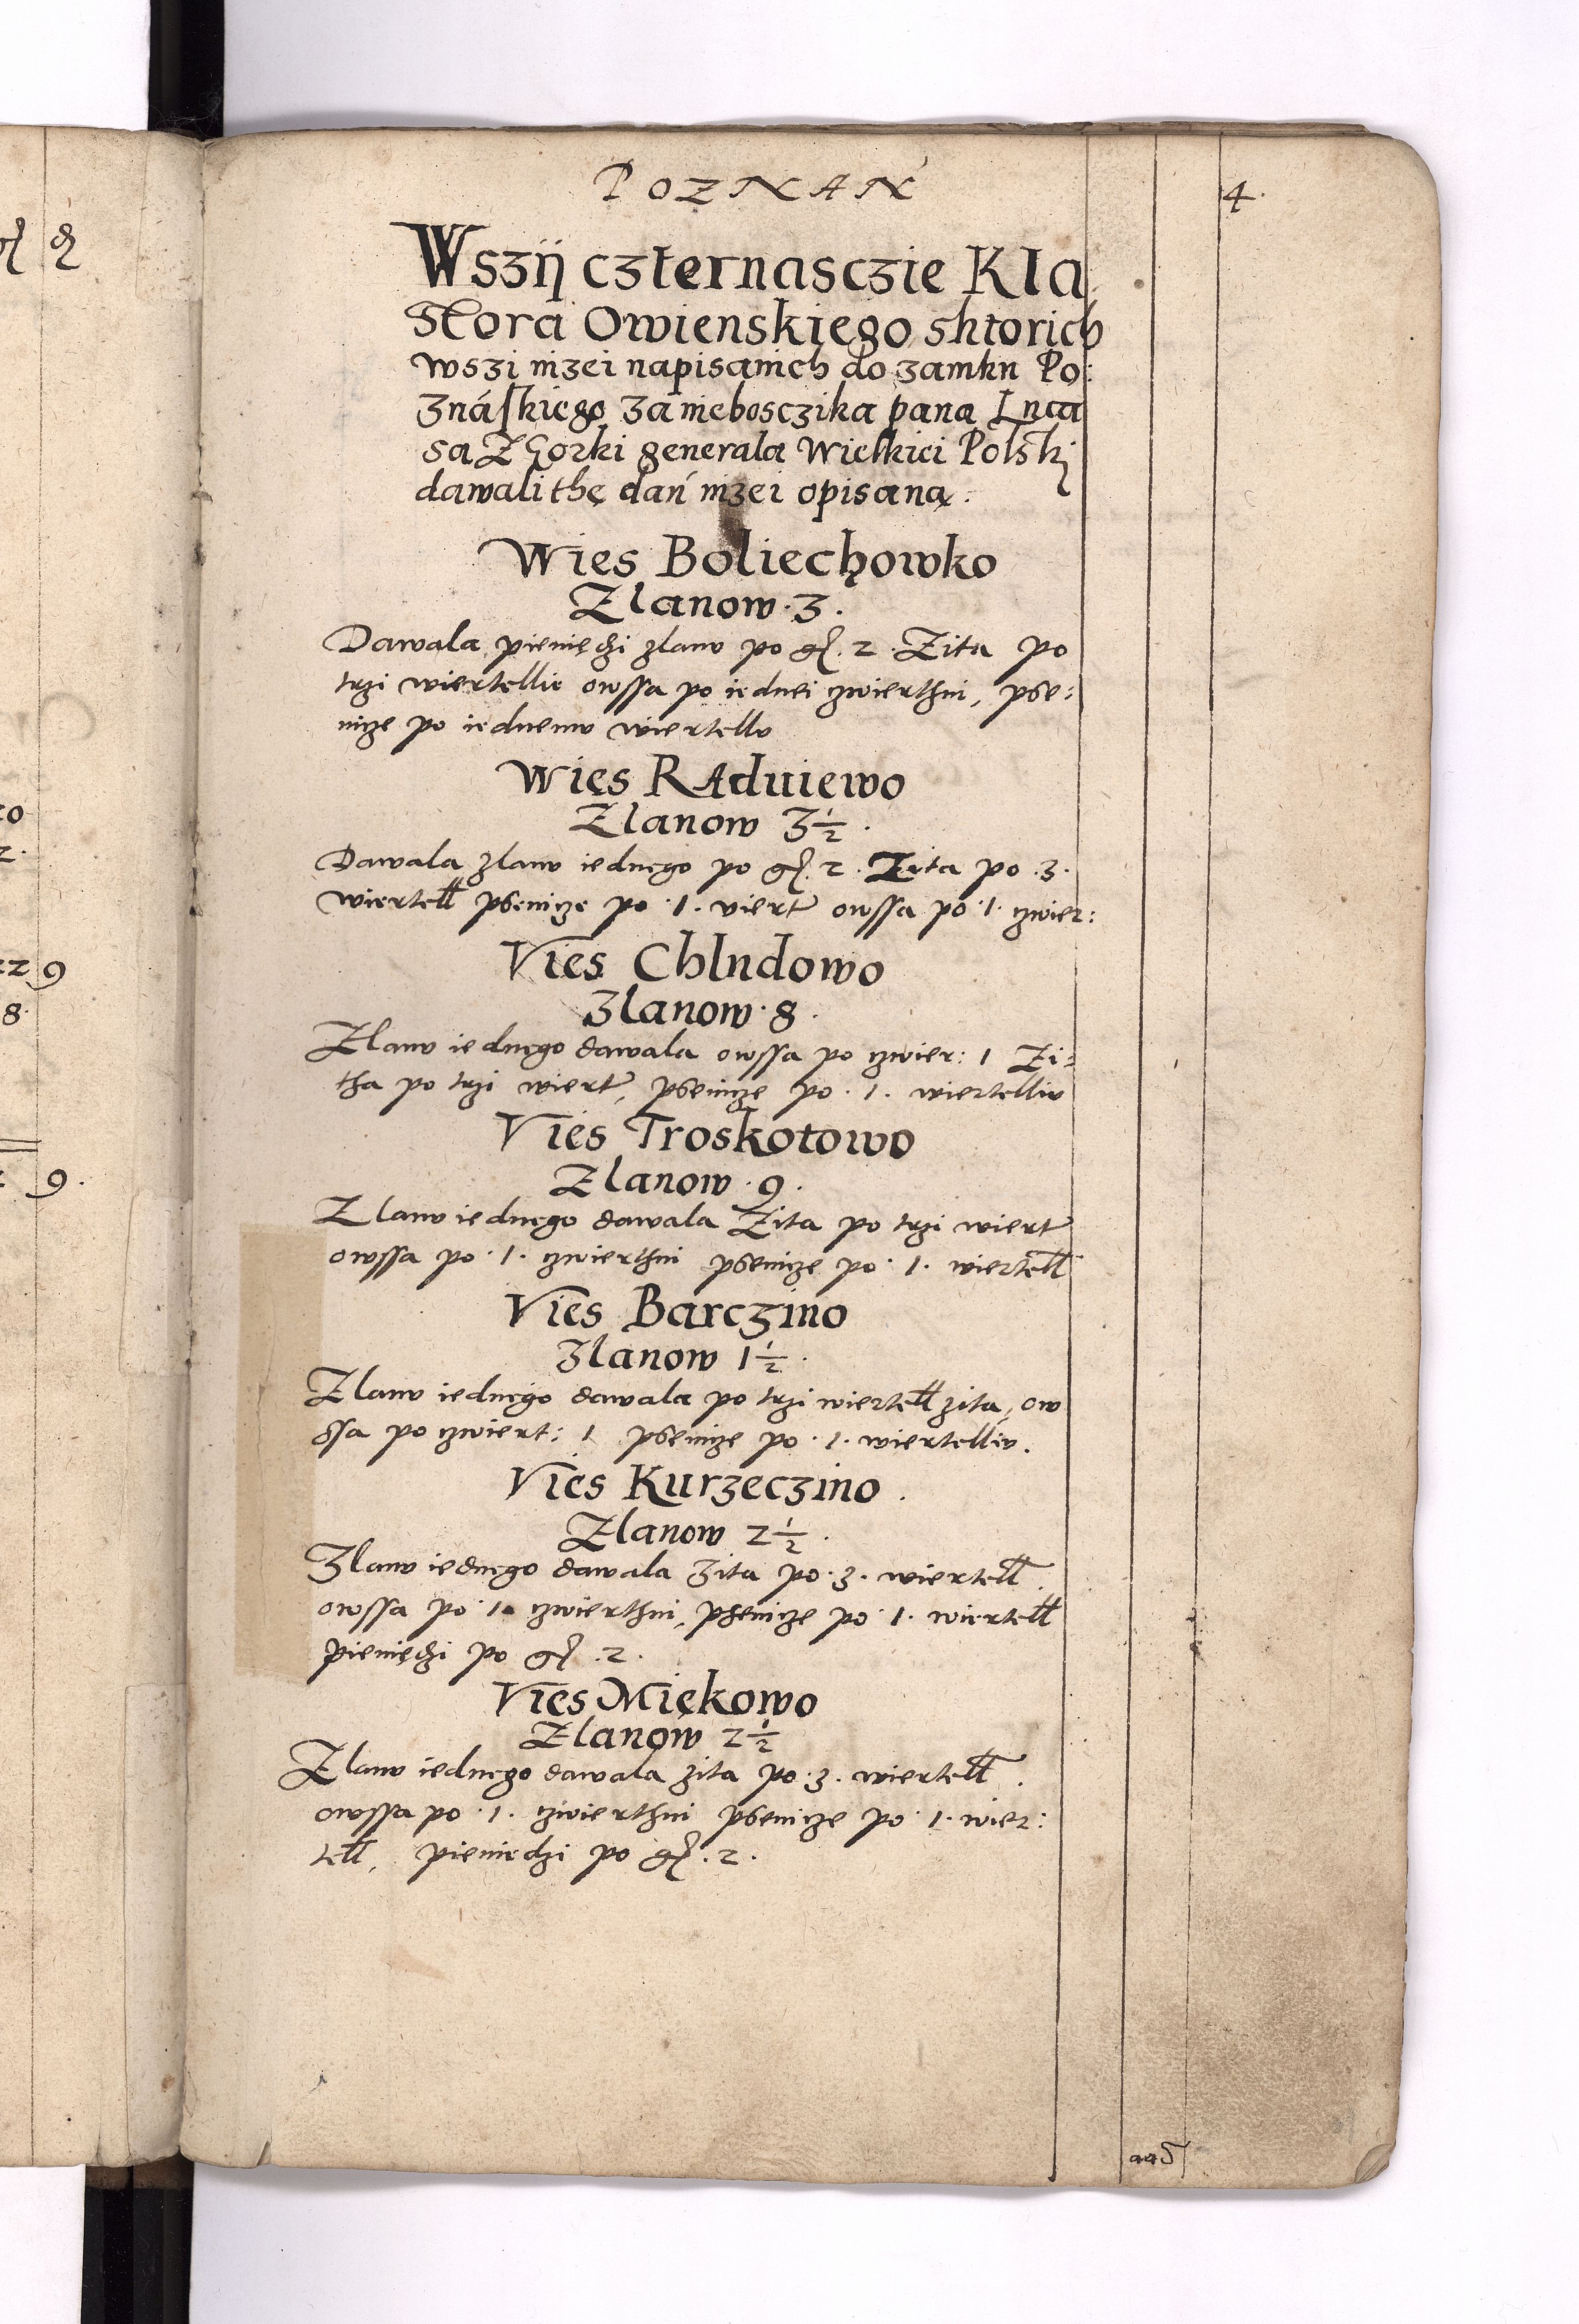 POZNAŃ
4.
Wszÿ cżternasczie Kla
stora Owienskiego shtorich
wszi nizei napisanich do zamku Po:
znáſkiego za nieboszczika pana Luca
sa Z Gorki generala Wielkiei Polski
dawali thę dań nizei opisaną.
Wies Boliechowko
Zlanow . 3 .
Dawala pieniędzi zlanu po gſ. 2 . Zita po
trzi wiertellie owssa po iednei czwierthni, pse:
nicze po iednemu wiertellu
Wies RAduiewo
Zlanow 3½ .
Dawala zlanu iednego po gſ. 2 . Zita po .3.
wiertell psenicze po .1. viert owssa po .1. czwier:
Vies Chludowo
Zlanow . 8 .
Zlanu iednego dawala owssa po czwier: 1 Zi:
tha po trzi wiert, psenicze po . 1 . wiertelliu
Vies Troskotowo
Zlanow . 9 .
Zlanu iednego dawala Zita po trzi wiert
owssa po . 1 . czwierthni psenicze po . 1 . wiertell
Vies Barczino
Zlanow 1½ .
Zlanu iednego dawala po trzi wiertell zita, ow
ssa po czwiert: 1 psenicze po . 1 . wiertelliu .
Vies Kurzeczino .
Zlanow 2½ .
Zlanu iednego dawala Zita po .3. wiertell .
owssa po . 1 . czwierthni, psenicze po . 1 . wiertell
pieniędzi po gſ . 2 .
Vies Miękowo
Zlanow 2½
Zlanu iednego dawala zita po .3. wiertell .
owssa po . 1 . czwierthni psenicze po . 1 . wier:
tell, pieniedzi po gſ . 2 .